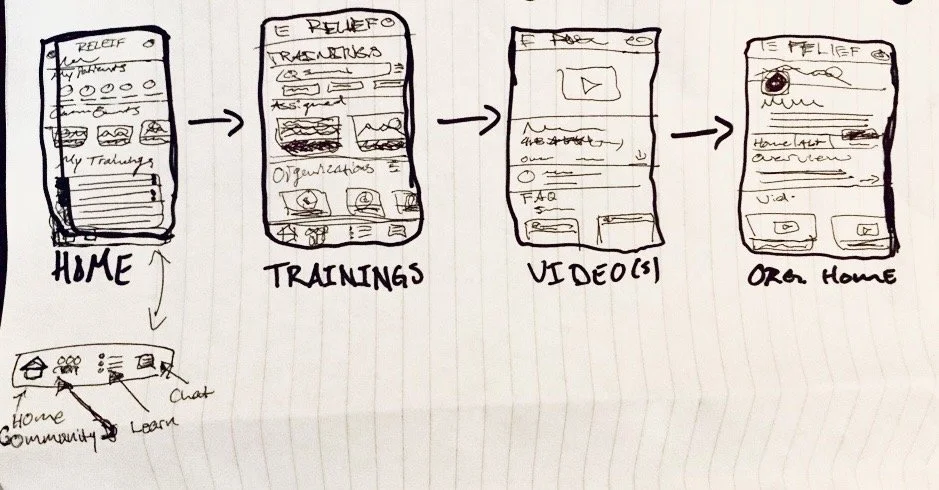 RELEIF
My Patients
My Trainings
HOME
RELIEF
TRAININGS
Assigned
Organizations
TRAININGS
FAQ
VIDEO(S)
RELIEF
Home
Overview
Vid.
ORG. HOME
Home
Community
Learn
Chat